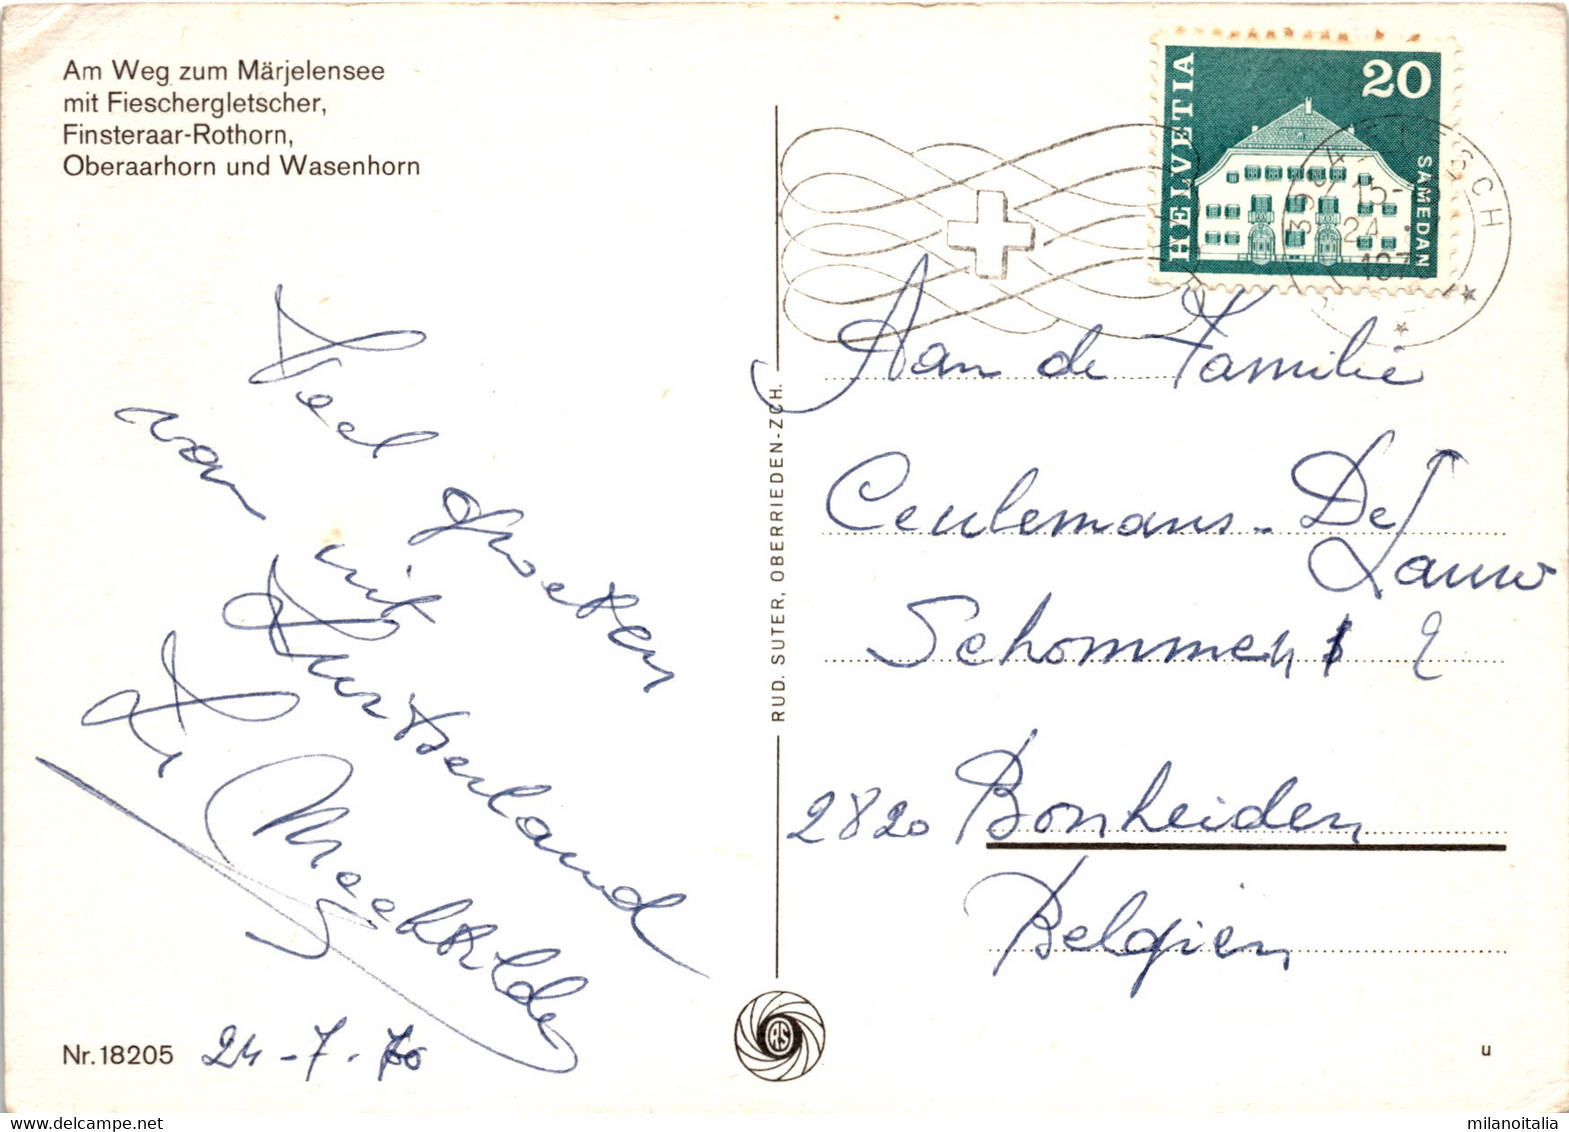 Am Weg zum Märjelensee
mit Fieschergletscher,
Finsteraar-Rothorn,
Oberaarhorn und Wasenhorn
HELVETIA
20
SAMEDAN
Veel groeten
van uit
Zwitserland
Zr Mechtilde
24-7-70
Nr. 18205
RUD. SUTER, OBERRIEDEN-ZCH.
Aan de Familie
Ceulemans-De
Lauw
Schommen 2
2820 Bonheiden
Belgien
RS
u
milanoitalia